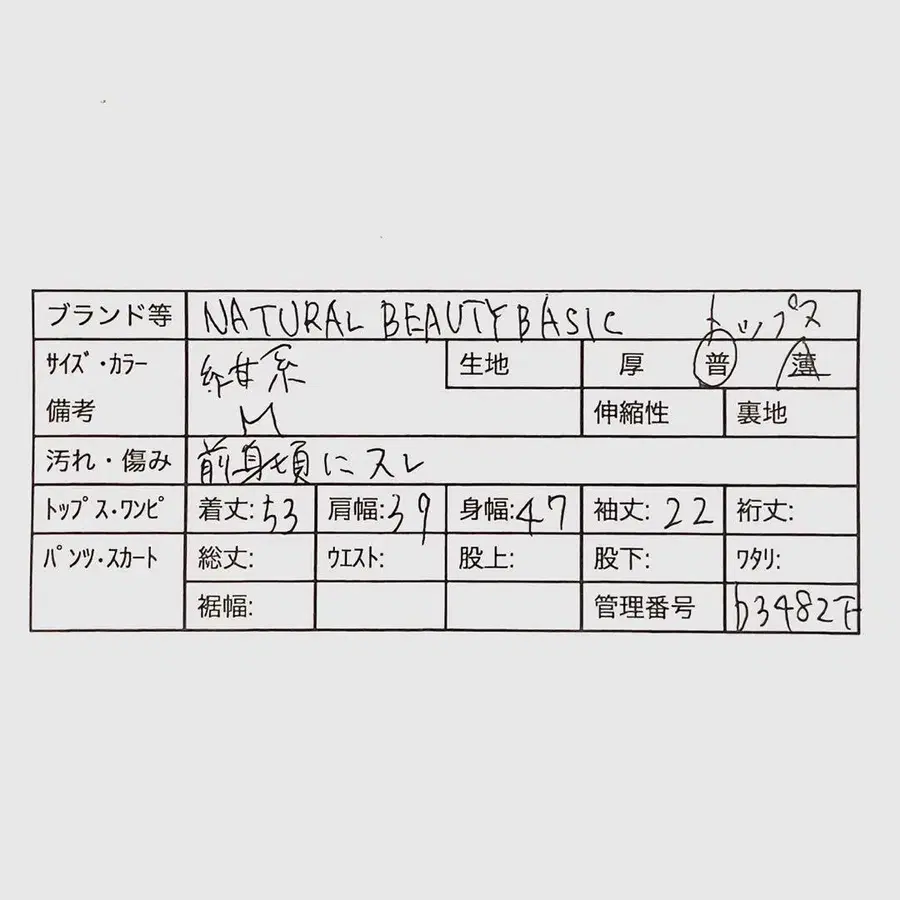 ブランド等 NATURAL BEAUTY BASIC トップス
サイズ・カラー 紺系 生地 厚 普 薄
備考 M 伸縮性 裏地
汚れ・傷み 前身頃にスレ
トップス・ワンピ 着丈:53 肩幅:39 身幅:47 袖丈:22 裄丈:
パンツ・スカート 総丈: ウエスト: 股上: 股下: ワタリ:
裾幅: 管理番号